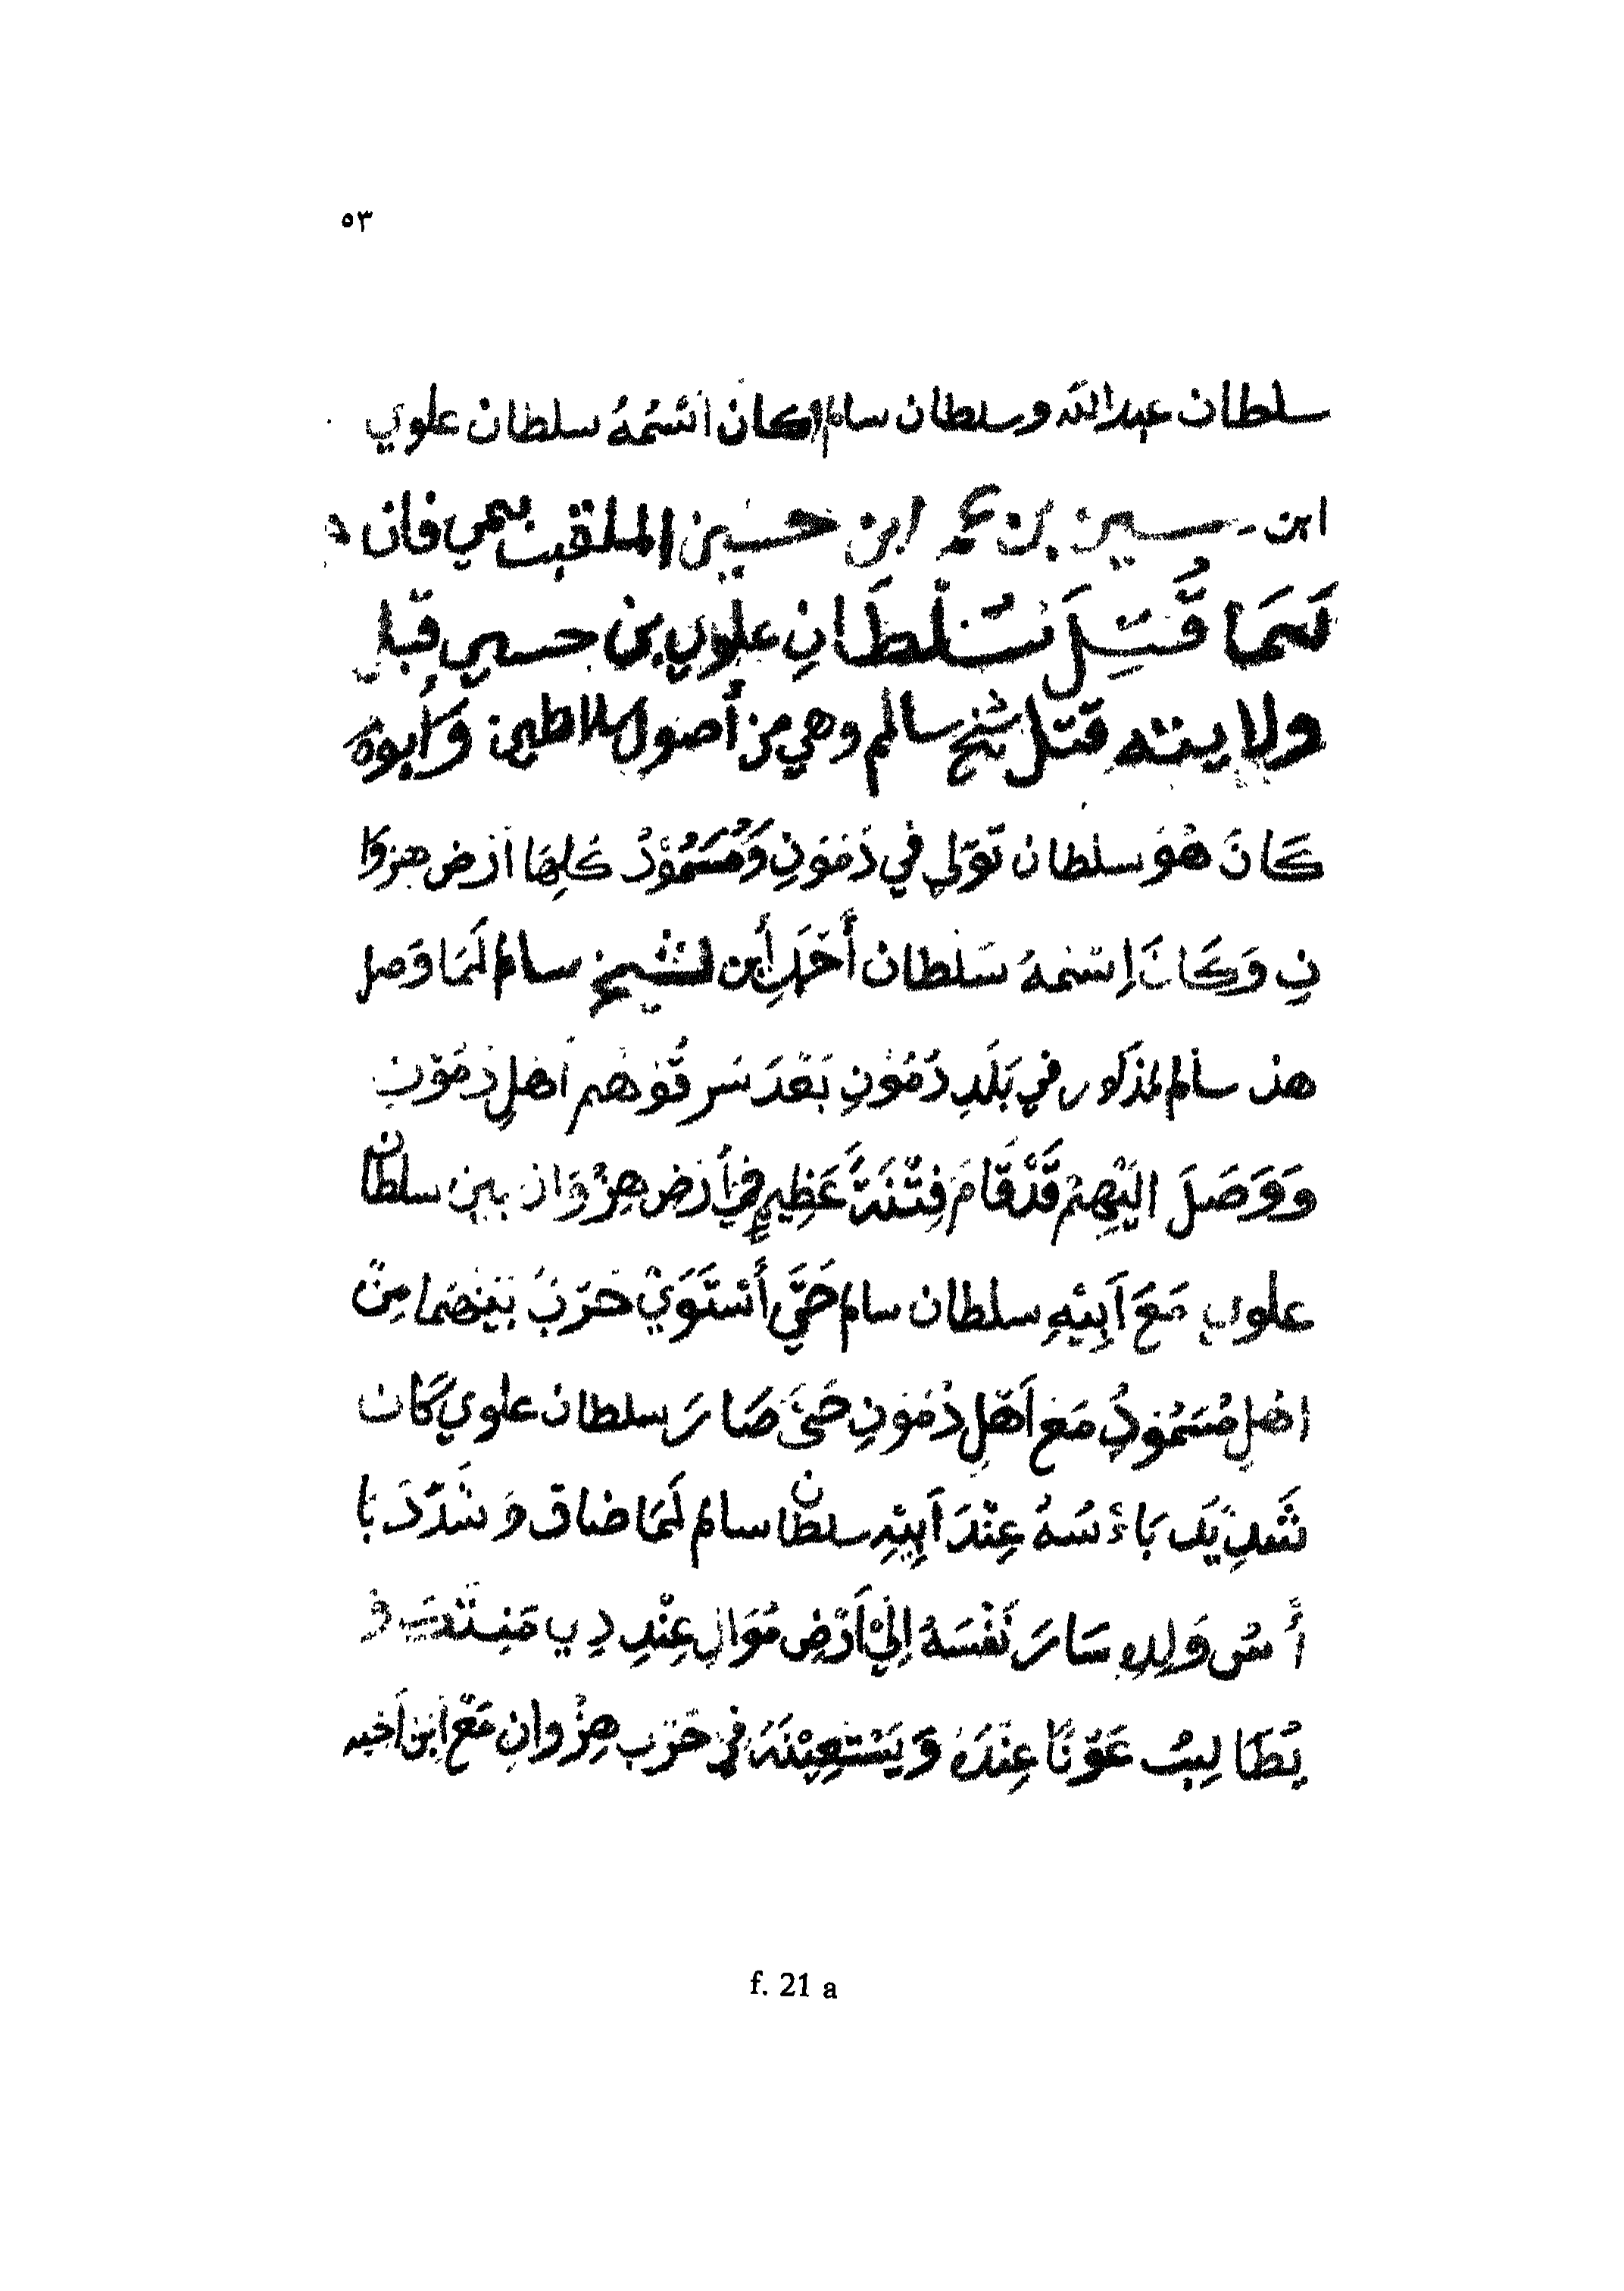 ٥٣
سلطان عبد الله وسلطان سالم كان اسْمُهُ سلطان علوي
ابن حسين بن محمد ابن حسين الملقب بمي فان
لَمَا قُتِلَ سُلْطَانِ علوي بن حسين قبل
ولايته قتل شيخ سالم وهي من أصول سلاطين وَأَبوهُ
كَانَ هُوَ سلطان تَوَلي في دَمَوَنِ وَمُسَمُوْدُ كُلِهَا اَرَض هزوا
نِ وَكَانَ اِسْمهُ سَلْطان أَحَمَد اِبن لشيخ سالم لَمَا وَصل
هذ سالم لمذكور في بَلَدِ دَمُوْنِ بَعْدَ سَرقُوْهُم اَهلِ دَمُوْنِ
وَوَصَلَ الَيْهِمْ قَدْ قَامَ فِتْنَةً عَظِيمٍ في أَرَض هِزْوَان بين سلطان
علوي مَعَ اَبِيْهِ سلطان سالم حَتَّي أَسْتَوَيْ حَرْبُ بَيْنهَما مِنْ
اهْلِ مُسَمُوْدُ مَعَ اَهْلِ دُمُوْنِ حَتَىَ صَارَ سلطان علوي كَان
شَدِيْد بَاءْسُهُ عِنْدَ اَبِيْهِ سلطان سالم لَمَا ضاق وَشَدَّدَ بَا
أْسُ وَلِدِهِ سَارَ نَفْسَهُ اِلَيْ اَرْضِ مُوَالِ عِنْدِ دِي مَنِتَتَ وَ
يُطَالِبُ عَوْنًا عِنْدَهُ وَيَسْتَعِيْنَهُ في حَرْبِ هِزْوانِ مَعْ اَبن اَخيه
f. 21 a